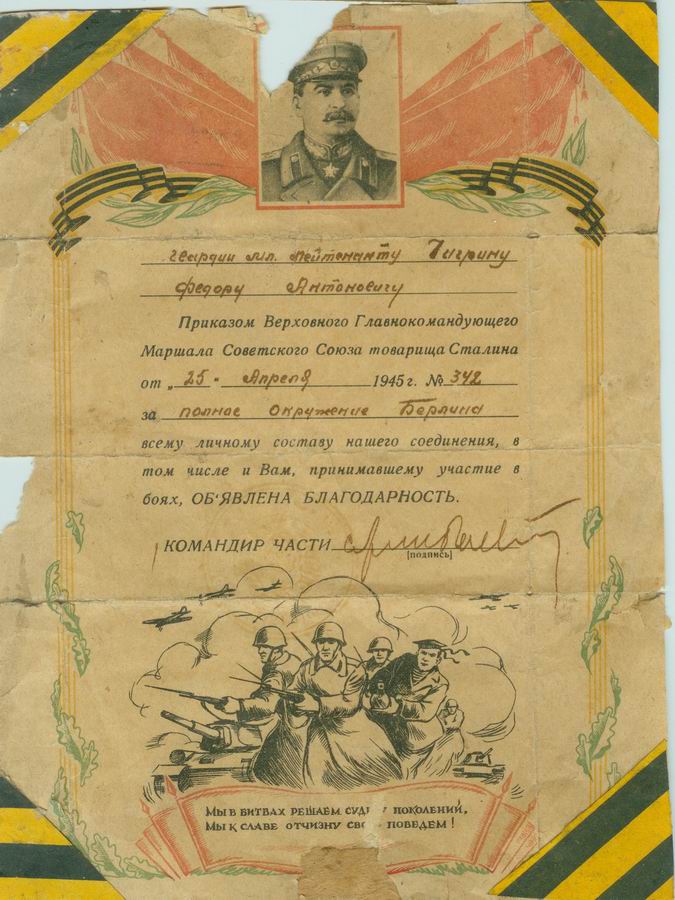 гвардии мл. лейтенанту Тигрину
Федору Антоновичу
Приказом Верховного Главнокомандующего
Маршала Советского Союза товарища Сталина
от „25“ Апреля 1945 г. № 342
за полное окружение Берлина
всему личному составу нашего соединения, в
том числе и Вам, принимавшему участие в
боях, ОБ'ЯВЛЕНА БЛАГОДАРНОСТЬ.
КОМАНДИР ЧАСТИ
[подпись]
МЫ В БИТВАХ РЕШАЕМ ПОКОЛЕНИЙ,
МЫ К СЛАВЕ ОТЧИЗНУ ПОВЕДЕМ!